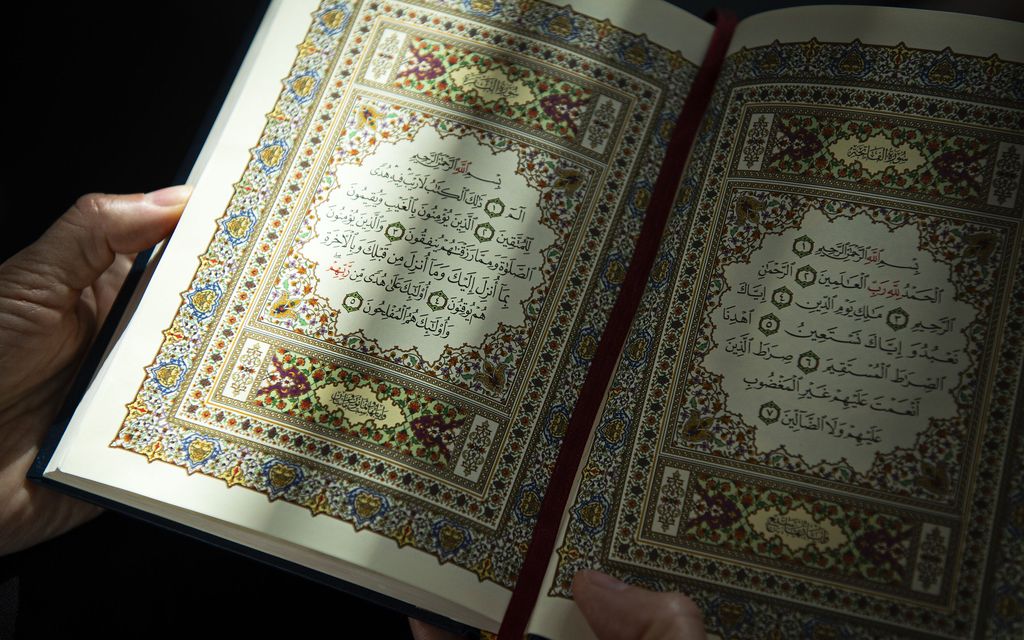 سُورَةُ الْفَاتِحَةِ
بِسْمِ اللَّهِ الرَّحْمَٰنِ الرَّحِيمِ ١
الْحَمْدُ لِلَّهِ رَبِّ الْعَالَمِينَ ٢ الرَّحْمَٰنِ
الرَّحِيمِ ٣ مَالِكِ يَوْمِ الدِّينِ ٤ إِيَّاكَ
نَعْبُدُ وَإِيَّاكَ نَسْتَعِينُ ٥ اهْدِنَا
الصِّرَاطَ الْمُسْتَقِيمَ ٦ صِرَاطَ الَّذِينَ
أَنْعَمْتَ عَلَيْهِمْ غَيْرِ الْمَغْضُوبِ
عَلَيْهِمْ وَلَا الضَّالِّينَ ٧
سُورَةُ الْبَقَرَةِ
بِسْمِ اللَّهِ الرَّحْمَٰنِ الرَّحِيمِ
الٓمٓ ١ ذَٰلِكَ الْكِتَابُ لَا رَيْبَ فِيهِ هُدًى
لِلْمُتَّقِينَ ٢ الَّذِينَ يُؤْمِنُونَ بِالْغَيْبِ وَيُقِيمُونَ
الصَّلَوٰةَ وَمِمَّا رَزَقْنَاهُمْ يُنْفِقُونَ ٣ وَالَّذِينَ يُؤْمِنُونَ
بِمَا أُنْزِلَ إِلَيْكَ وَمَا أُنْزِلَ مِنْ قَبْلِكَ وَبِالْآخِرَةِ
هُمْ يُوقِنُونَ ٤ أُولَٰئِكَ عَلَىٰ هُدًى مِنْ رَبِّهِمْ
وَأُولَٰئِكَ هُمُ الْمُفْلِحُونَ ٥